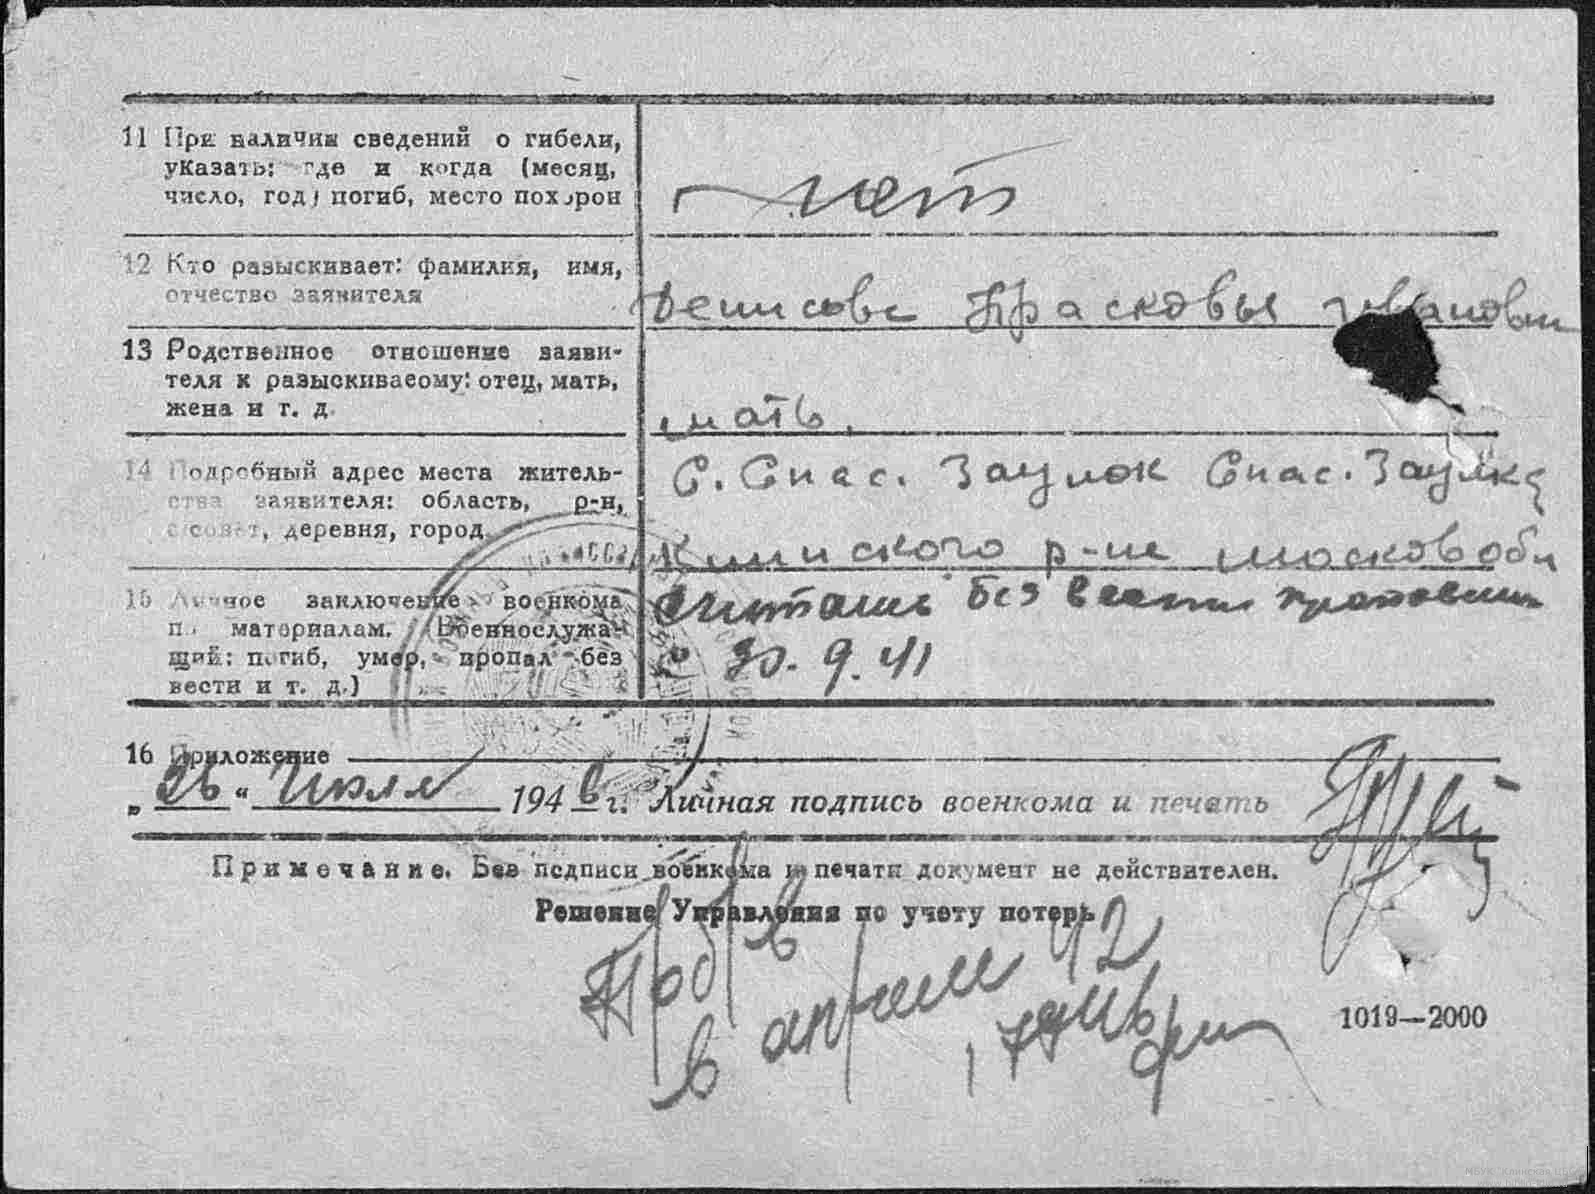 11 При наличии сведений о гибели,
указать: где и когда (месяц,
число, год) погиб, место похорон
нет
12 Кто разыскивает: фамилия, имя,
отчество заявителя
Денисова Прасковья Ивановн
13 Родственное отношение заяви-
теля к разыскиваемому: отец, мать,
жена и т. д.
мать.
14 Подробный адрес места житель-
ства заявителя: область, р-н,
с/совет, деревня, город.
С. Спас. Заулок Спас. Заулкс
Клинского р-не Московобл
15 Личное заключение военкома
по материалам. (Военнослужа-
щий: погиб, умер, пропал без
вести и т. д.)
Считать без вести пропавшим
с 30.9.41
16 Приложение
„26“ Июля 1946 г. Личная подпись военкома и печать
Примечание. Без подписи военкома и печати документ не действителен.
Решение Управления по учету потерь
в апреле 42
1019—2000
МБУК "Клинская ЦБС"